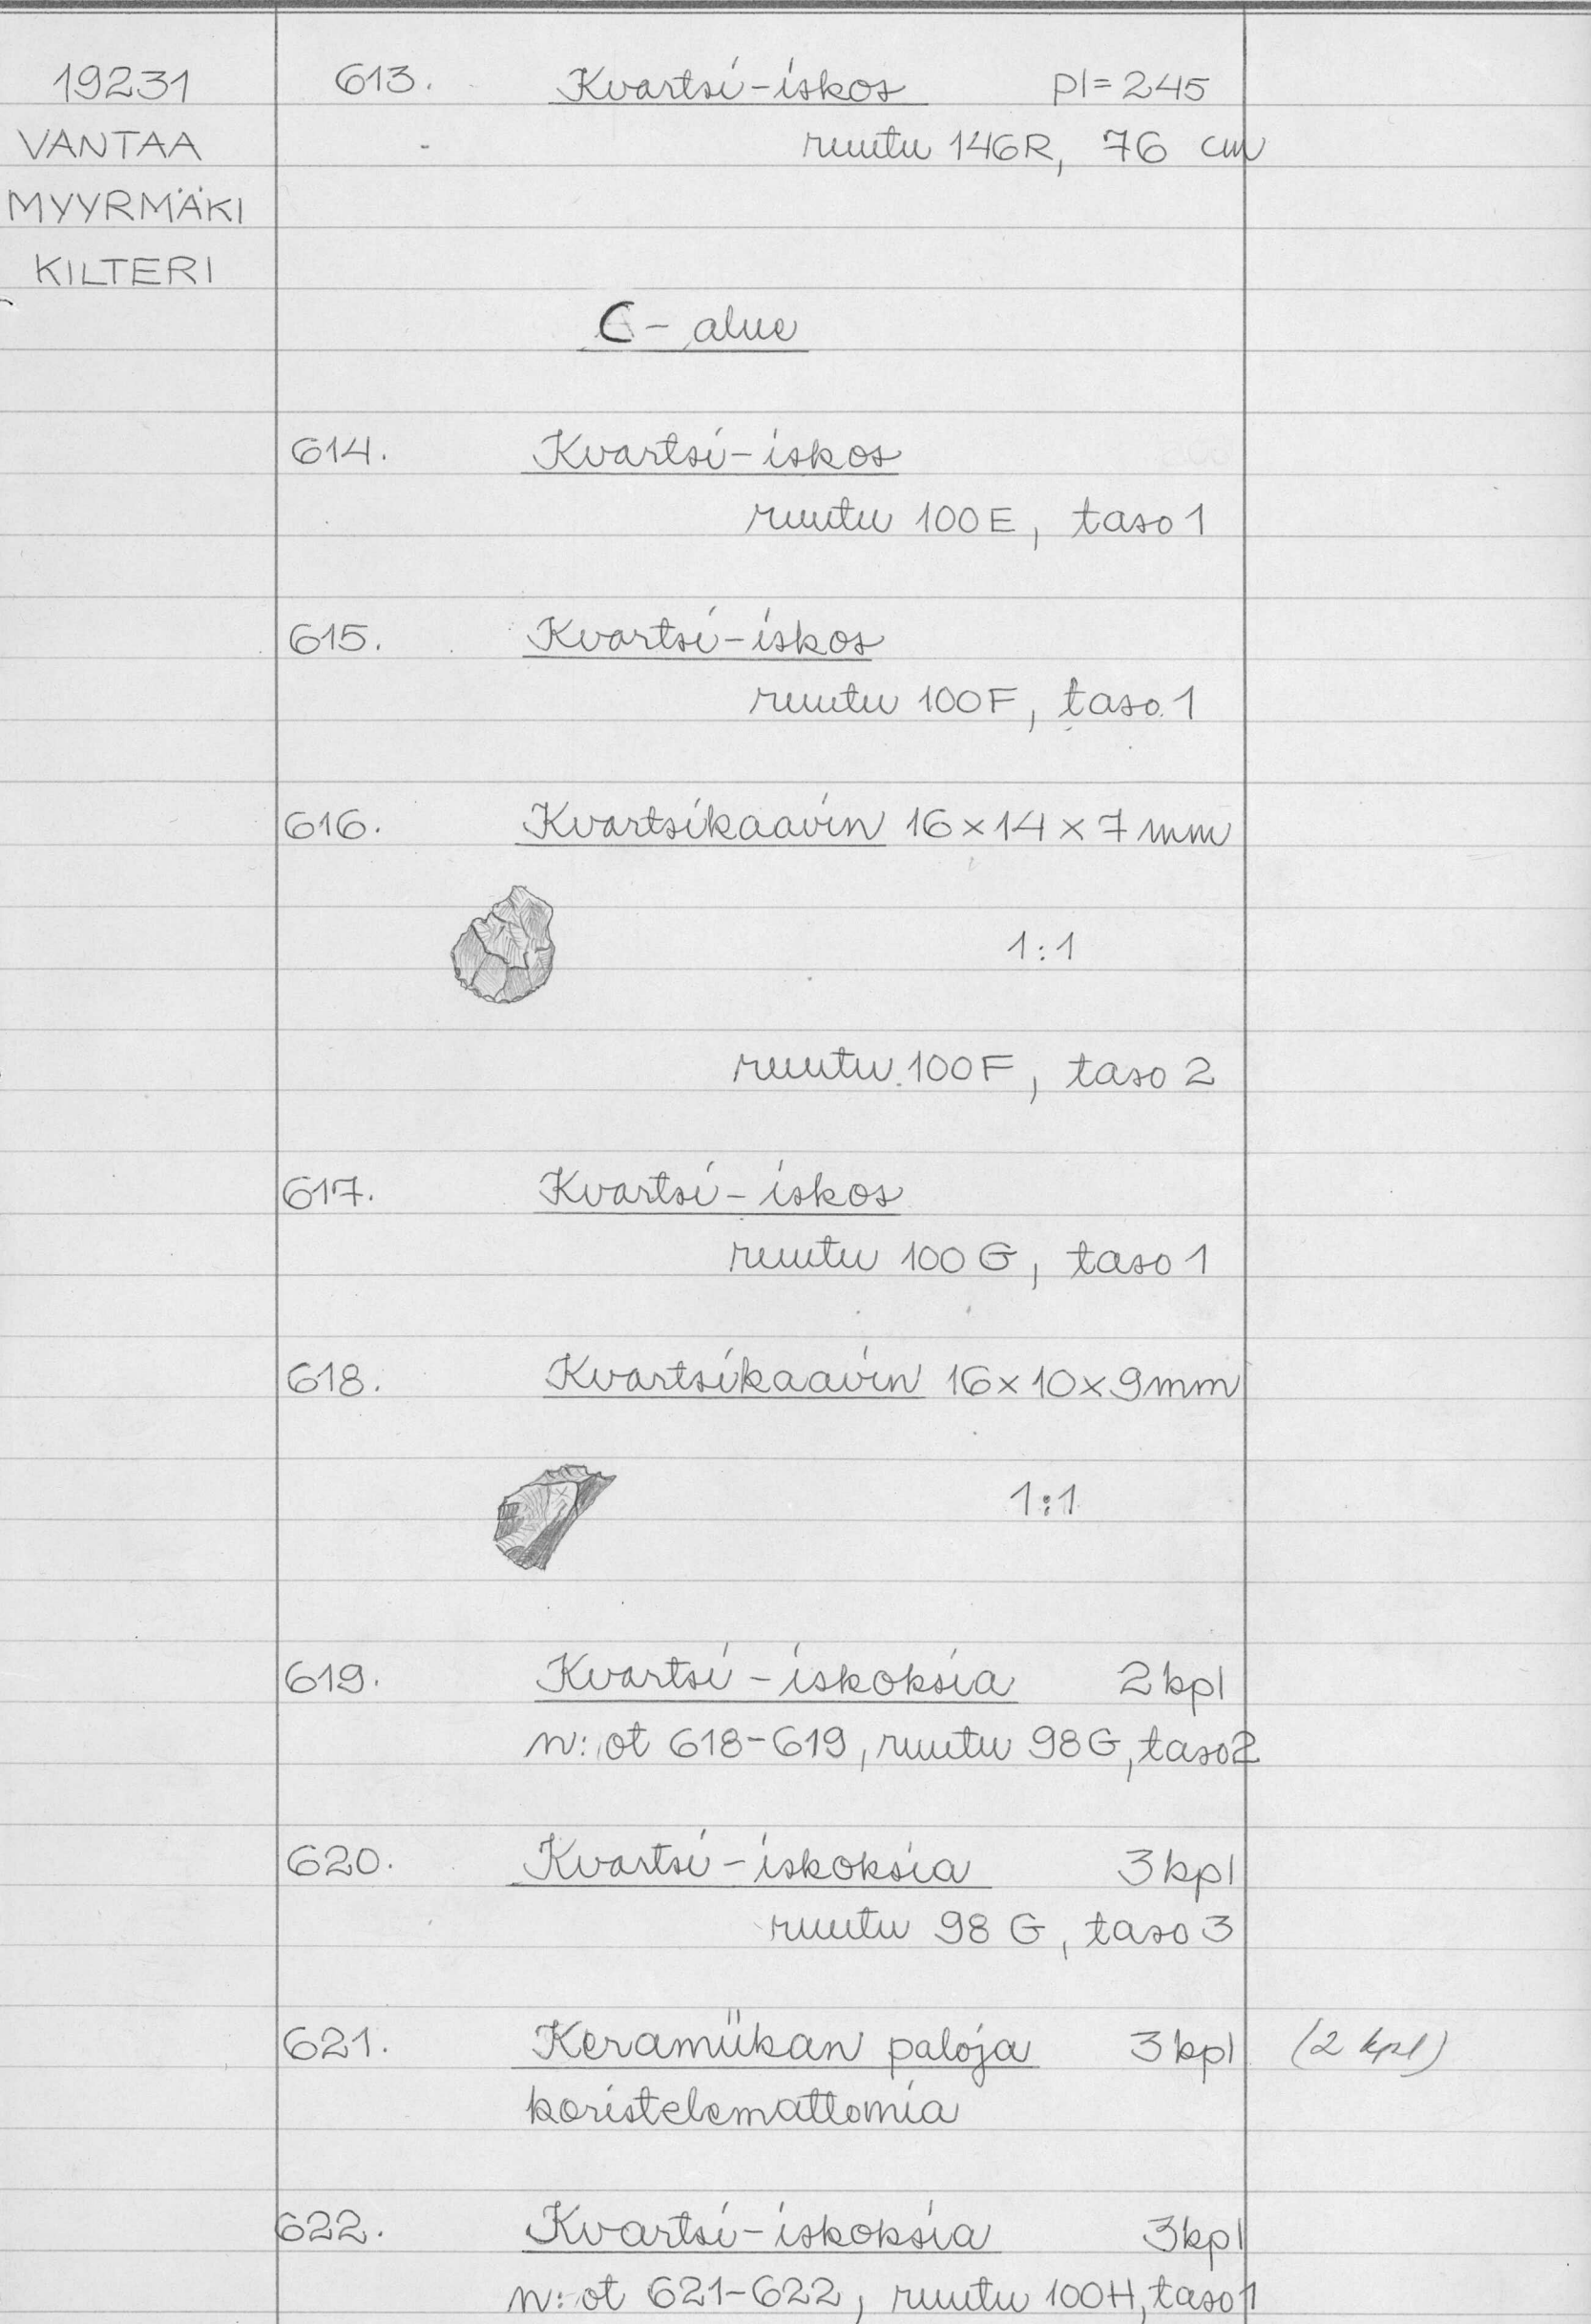 19231
VANTAA
MYYRMÄKI
KILTERI
613. Kvartsi-iskos pl=245
ruutu 146R, 76 cm
C-alue
614. Kvartsi-iskos
ruutu 100E, taso 1
615. Kvartsi-iskos
ruutu 100F, taso 1
616. Kvartsikaavin 16x14x7mm
1:1
ruutu 100F, taso 2
617. Kvartsi-iskos
ruutu 100G, taso 1
618. Kvartsikaavin 16x10x9mm
1:1
619. Kvartsi-iskoksia 2kpl
n:ot 618-619, ruutu 98G, taso2
620. Kvartsi-iskoksia 3kpl
ruutu 98 G, taso 3
621. Keramiikan paloja 3kpl (2 kpl)
koristelemattomia
622. Kvartsi-iskoksia 3kpl
n:ot 621-622, ruutu 100H, taso1